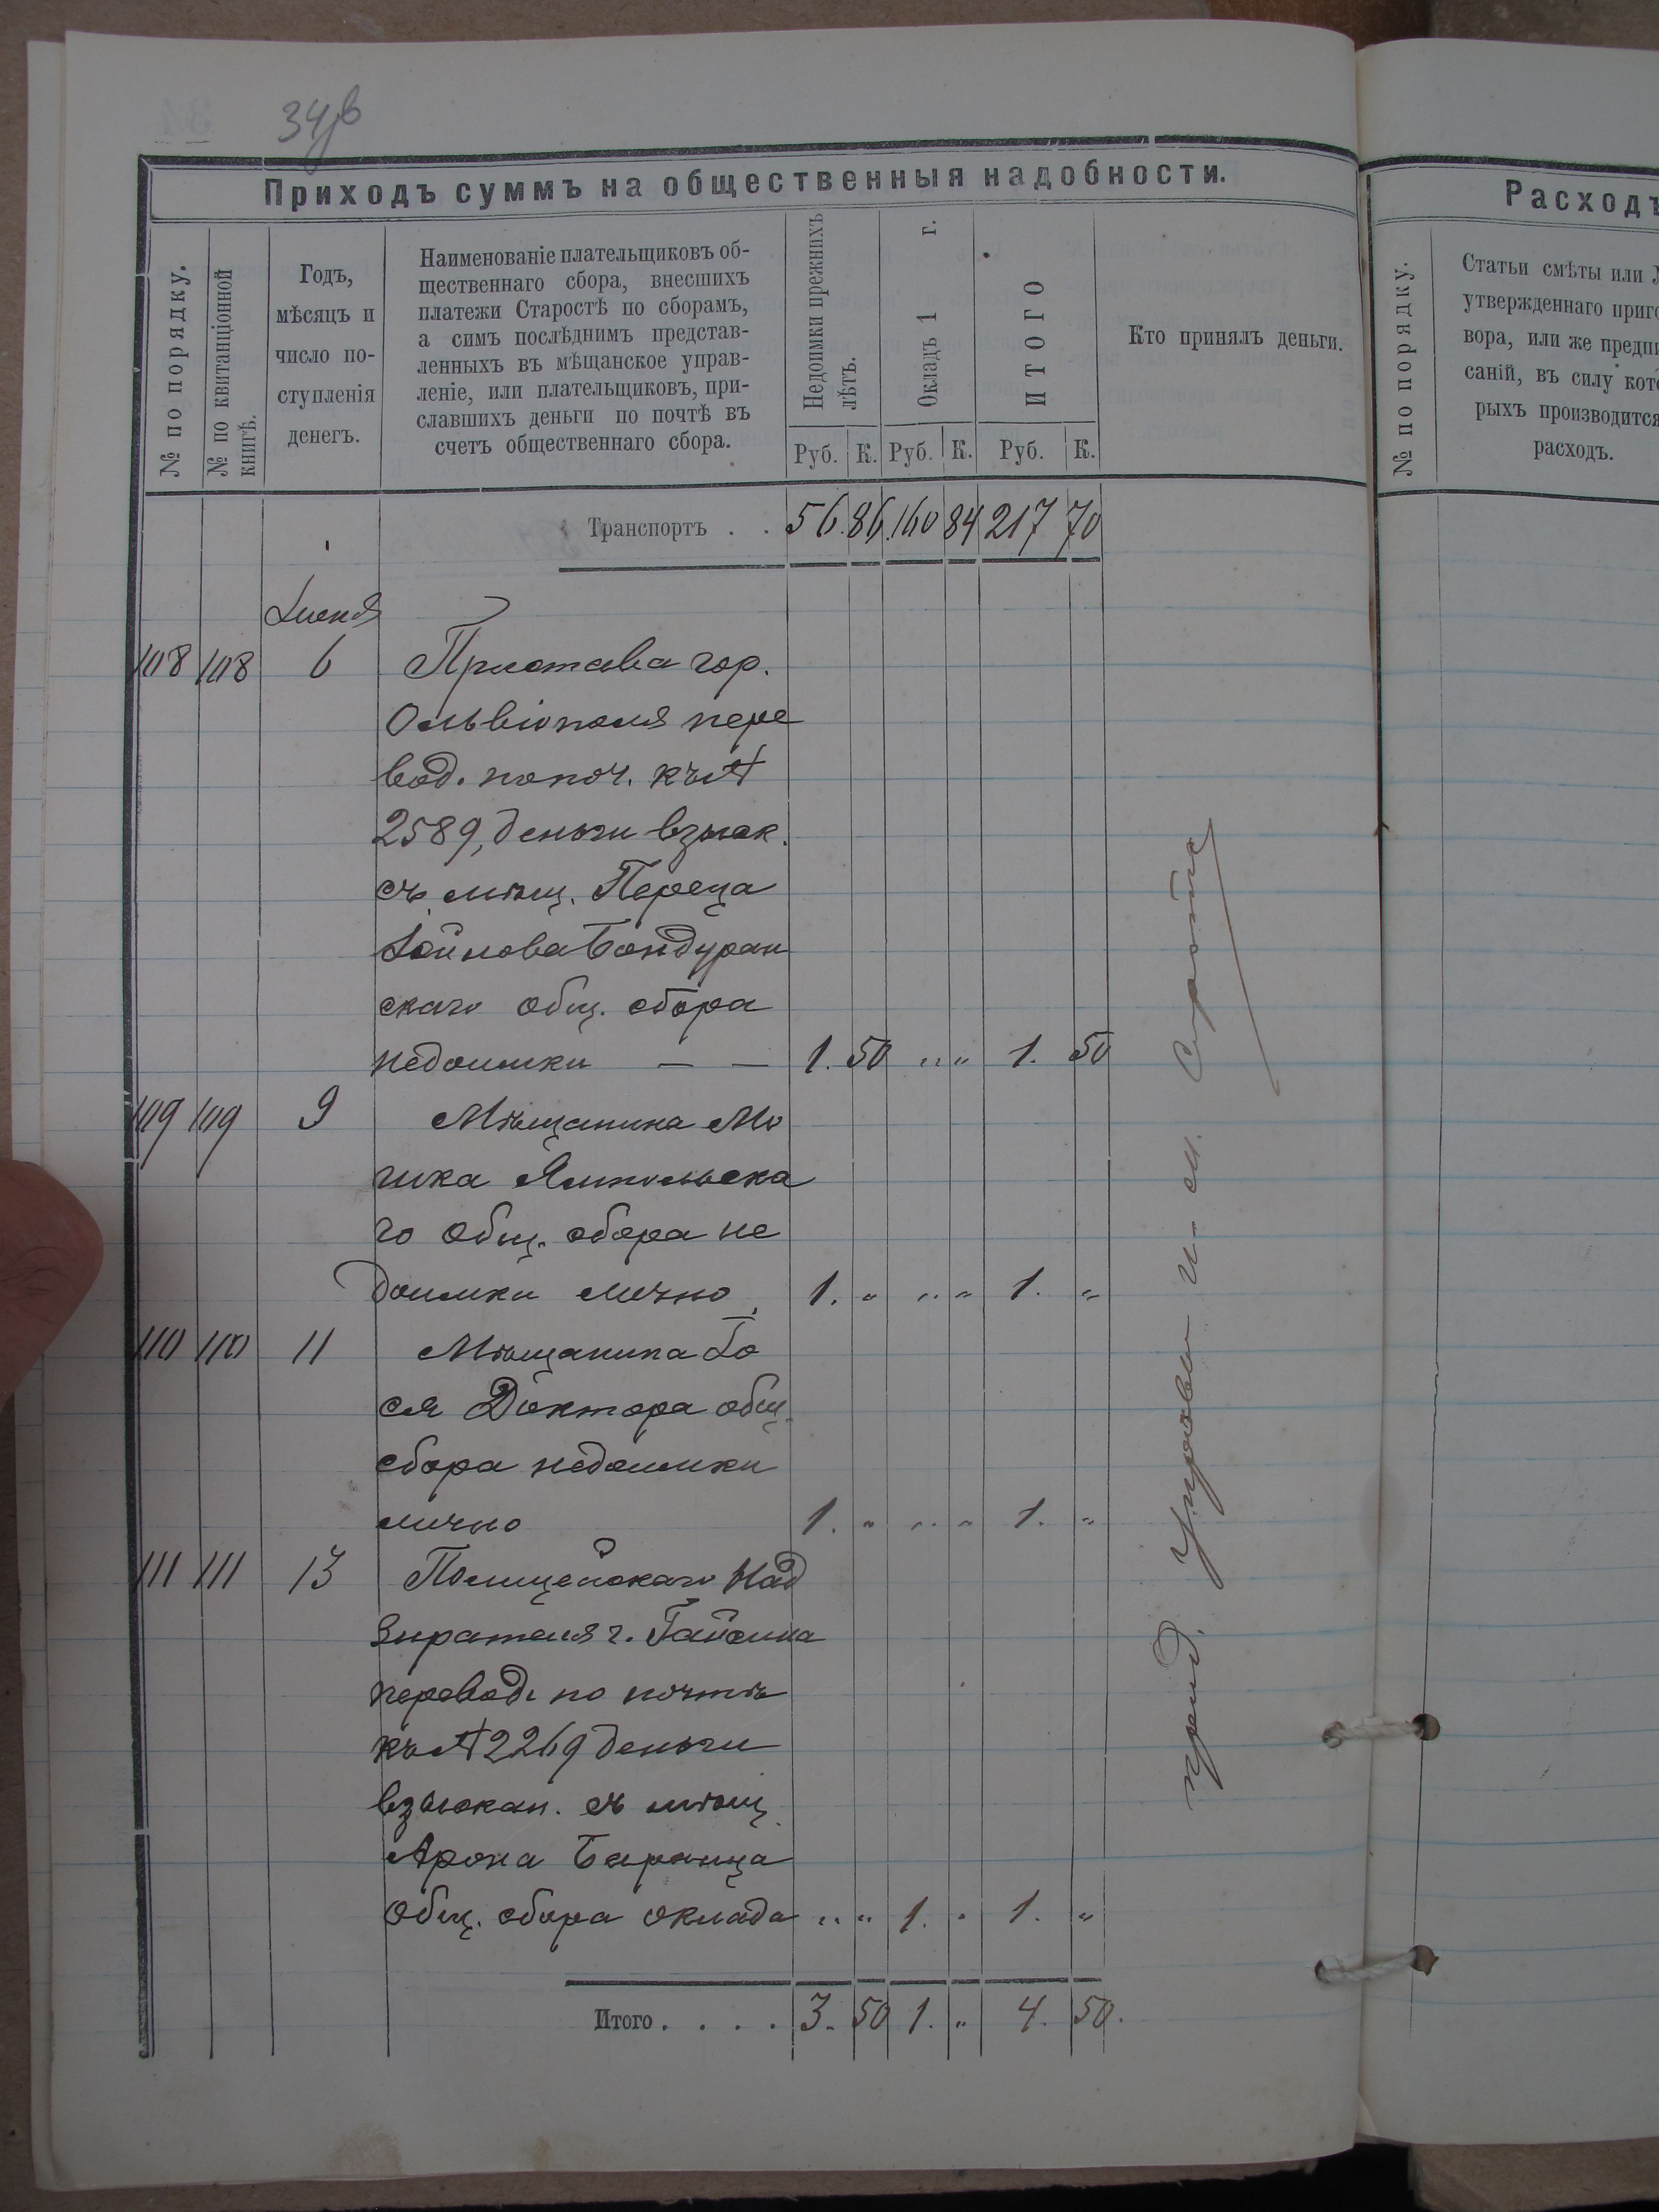 34 в
Приходъ суммъ на общественныя надобности.
№ по порядку.
№ по квитанціонной
книгѣ.
Годъ,
мѣсяцъ и
число по-
ступленія
денегъ.
Наименованіе плательщиковъ об-
щественнаго сбора, внесшихъ
платежи Старостѣ по сборамъ,
а симъ послѣднимъ представ-
ленныхъ въ мѣщанское управ-
леніе, или плательщиковъ, при-
славшихъ деньги по почтѣ въ
счетъ общественнаго сбора.
Недоимки прежнихъ
лѣтъ.
Окладъ 1 г.
ИТОГО
Кто принялъ деньги.
Руб. К. Руб. К. Руб. К.
Транспортъ . . 56. 86. 160 84 217 70
Іюня
108 108 6 Пристава гор.
Ольвіополя пере
вод. по поч. къ №
2589, деньги взыск.
съ мѣщ. Переца
Бондуран
скаго общ. сбора
недоимки — — 1. 50 „ „ 1. 50
109 109 9 Мѣщанина Мо
шка Ямпольска
го общ. сбора не
доимки лично 1. „ „ „ 1. „
110 110 11 Мѣщанина Іо
ся Доктора общ.
сбора недоимки
лично 1. „ „ „ 1. „
111 111 13 Полицейскаго Над
зирателя г. Гайсина
перевод. по почтѣ
къ № 2269 деньги
взыскан. съ мѣщ.
Арона Баранца
общ. сбора оклада „ „ 1. „ 1. „
Итого . . . . 3. 50 1. „ 4. 50.
Расходъ
№ по порядку.
Статьи смѣты или
утвержденнаго приго
вора, или же предпи
саній, въ силу кото
рыхъ производится
расходъ.